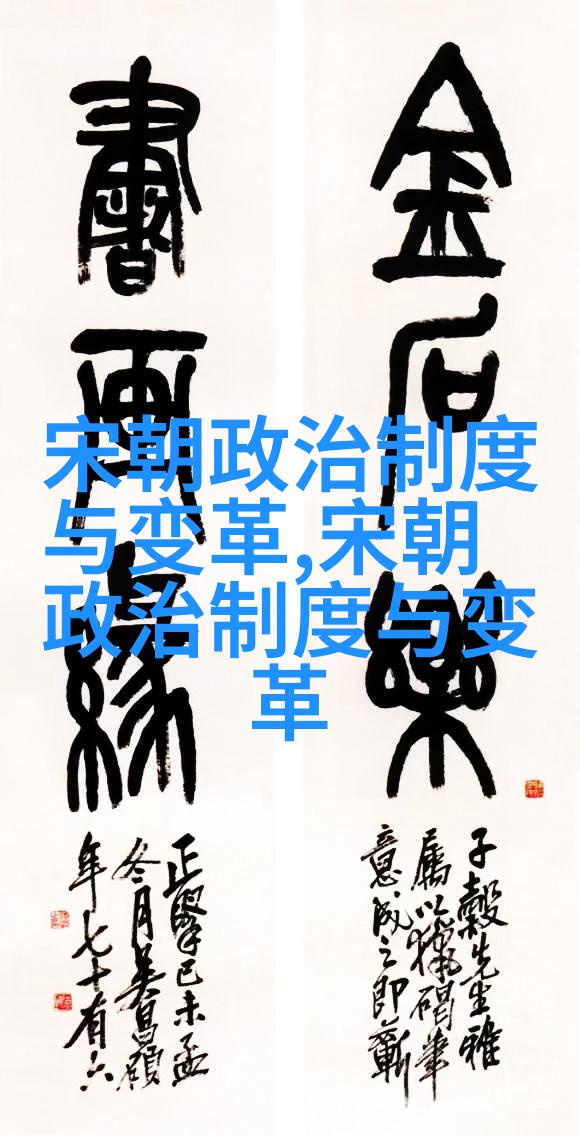 金石樂
子穀先生雅
屬以獵碣筆
意成之即蘄
書畫緣
正擘己未孟
冬月吴昌碩
年七十有六
宋朝政治制度
与变革,宋朝
政治制度与变
革